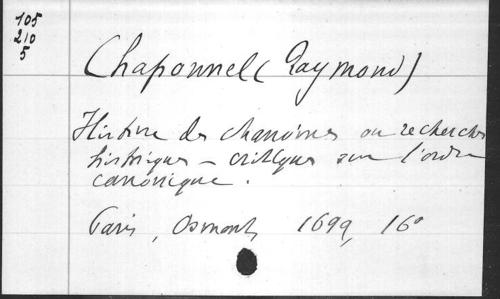 105
210
5
Chaponnel (Raymond)
Histoire des chanoines ou recherches
historiques - critiques sur l'ordre
canonique.
Paris, Osmont, 1699, 16°